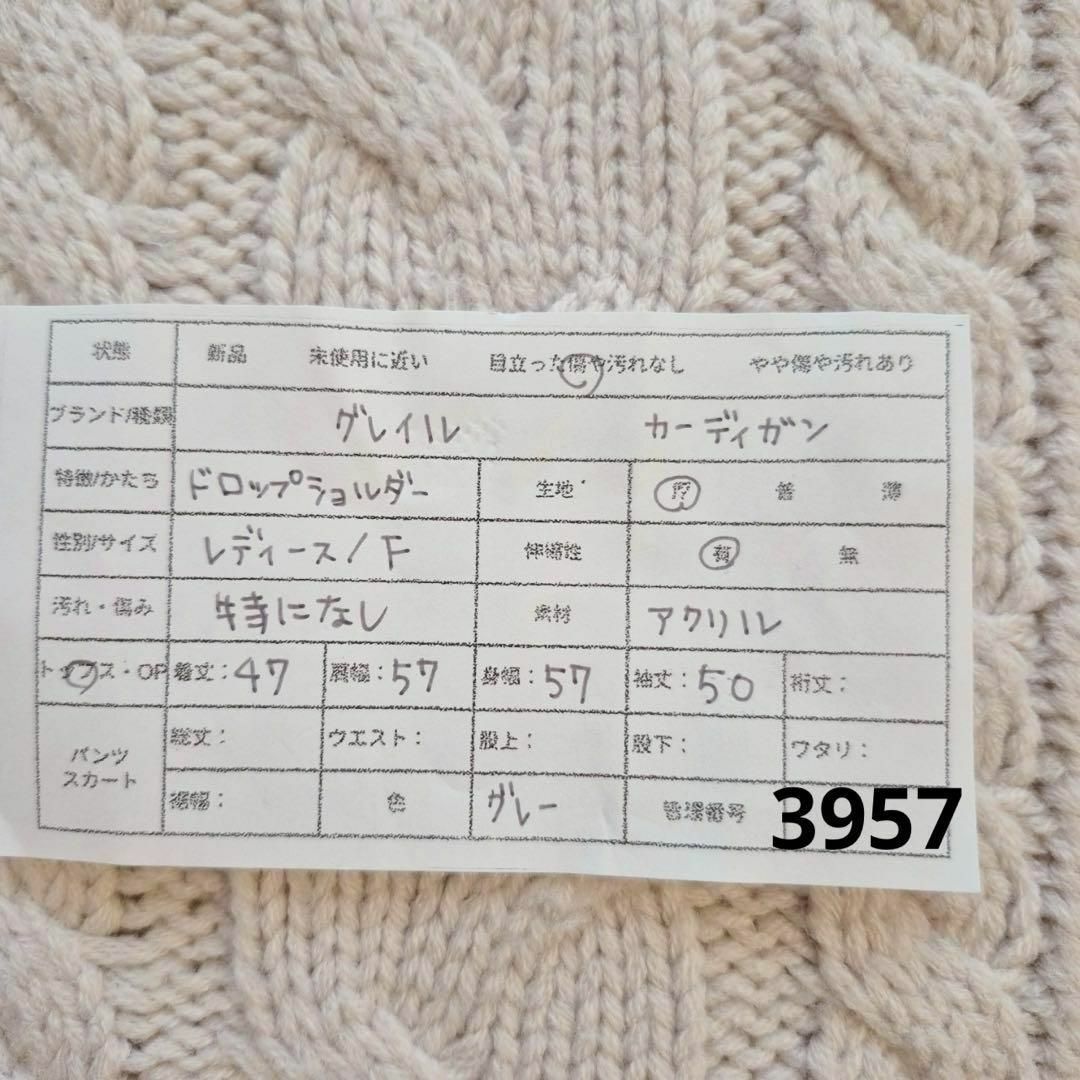 状態 新品 未使用に近い 目立った傷や汚れなし やや傷や汚れあり
ブランド/種類 グレイル カーディガン
特徴/かたち ドロップショルダー 生地 厚 普 薄
性別/サイズ レディース/F 伸縮性 有 無
汚れ・傷み 特になし 素材 アクリル
トップス・OP 着丈:47 肩幅:57 身幅:57 袖丈:50 裄丈:
パンツ スカート
総丈: ウエスト: 股上: 股下: ワタリ:
裾幅: 色 グレー 管理番号 3957